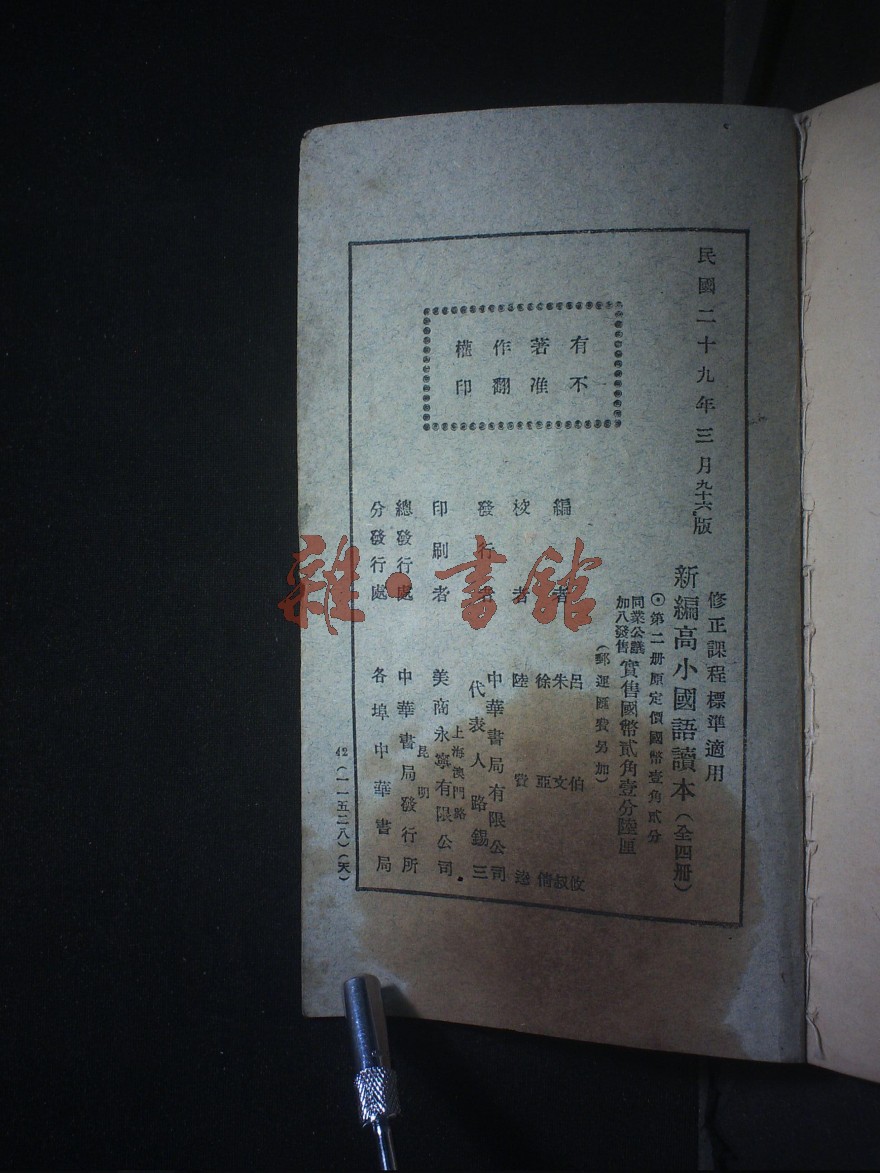 民國二十九年三月九十六版
修正課程標準適用
新編高小國語讀本（全四冊）
⊙第二册原定價國幣壹角貳分
同業公議
加八發售
實售國幣貳角壹分陸厘
（郵運匯費另加）
有著作權
不准翻印
編者
呂伯攸
朱文叔
徐亞倩
校者
陸費逵
發行者
中華書局有限公司
代表人路錫三
印刷者
上海澳門路
美商永寧有限公司
總發行處
昆明
中華書局發行所
分發行處
各埠中華書局
42（一一五二八）（天）
雜·書館